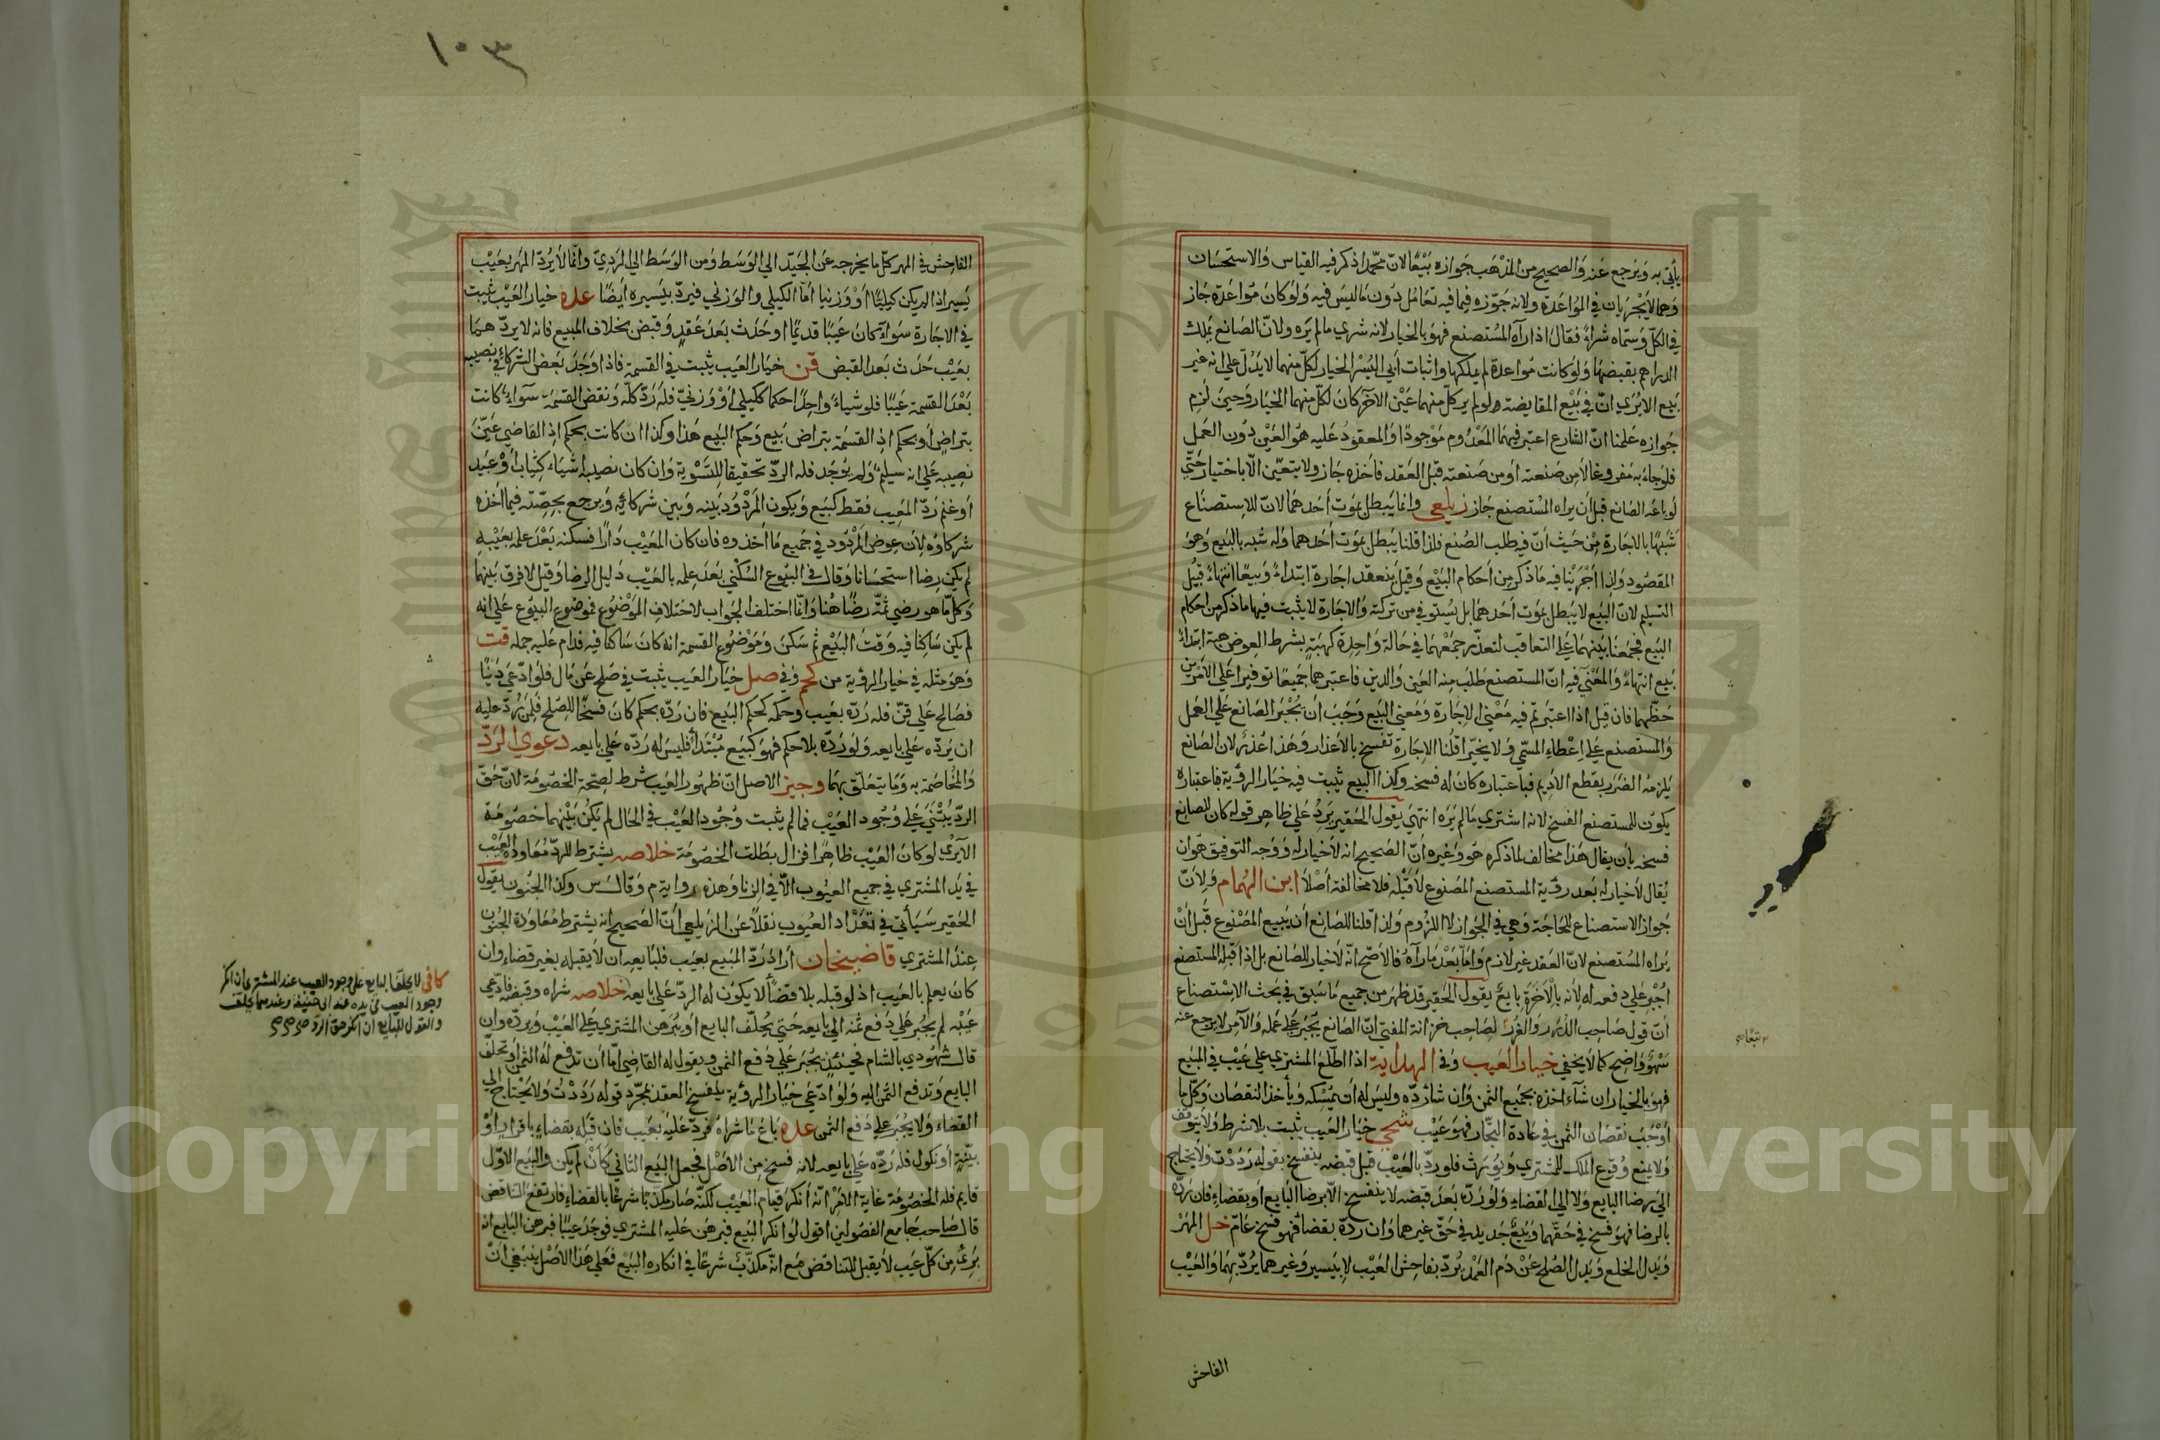 يأتى به ويرجع عنه والصحيح من المذهب جوازه بيعا لان محمدا ذكر فيه القياس والاستحسان
وهما لا يجريان في المواعدة ولانه جوّزه فيما فيه تعامل دون ما ليس فيه ولو كان مواعدة جاز
في الكل وسماه شراء فقال اذا رآه المستصنع فهو بالخيار لانه شري ما لم يره ولانّ الصانع يملك
الدراهم بقبضها ولو كانت مواعدة لم يملكها واثبات أبي اليسر الخيار لكل منهما لا يدلّ علي انه غير
بيع الا يري انّ في بيع المقايضة ولو لم ير كلّ منهما عين الآخر كان لكل منهما الخيار وحين لزم
جوازه علمنا انّ الشارع اعتبر فيها المعدوم موجودا والمعقود عليه هو العين دون العمل
فلو جاء به مفروغا لا من صنعته او من صنعته قبل العقد فأخذه جاز ولا يتعيّن الّا باختيار حتّي
لو باعه الصّانع قبل أن يراه المستصنع جاز زيلعي وانما يبطل بموت أحدهما لانّ للاستصناع
شبها بالاجارة من حيث أنّ فيه طلب الصّنع فلذا قلنا يبطل بموت أحدهما وله شبه بالبيع وهو
المقصود ولذا أجرينا فيه ما ذكر من أحكام البيع وقيل ينعقد اجارة ابتداء وبيعا انتهاء قبيل
التسليم لانّ البيع لا يبطل بموت أحدهما بل يستوفي من تركته والاجارة لا يثبت فيها ما ذكر من احكام
البيع فجمعنا بينهما علي التعاقب لتعذّر جمعهما في حالة واحدة كهبة بشرط العوض هبة ابتداء
بيع انتهاء والمعني فيه انّ المستصنع طلب منه العين والدين فاعتبرهما جميعا توفيرا علي الامرين
حظّهما فان قيل اذا اعتبرتم فيه معني الاجارة ومعني البيع وجب ان يجبر الصّانع علي العمل
والمستصنع علي اعطاء المسمّي ولا يخيّر اقلنا الاجارة تفسخ بالاعذار وهذا عذر لان الصّانع
يلزمه الضرر بقطع الاديم فباعتباره كان له فسخه وكذا البيع ثبت فيه خيار الرؤية فباعتباره
يكون للمستصنع الفسخ لانه اشتري ما لم يره انتهي يقول الحقير يرد علي ظاهر قوله كان للصانع
فسخه بأن يقال هذا مخالف لما ذكره هو وغيره أنّ الصحيح انه لا خيار له ووجه التوفيق هو ان
يقال لا خيار له بعد رؤية المستصنع المصنوع لا قبله فلا مخالفة أصلا ابن الهمام ولانّ
جواز الاستصناع للحاجة وهي في الجواز لا اللزوم ولذا قلنا للصّانع أن يبيع المصنوع قبل أن
يراه المستصنع لانّ العقد غير لازم وامّا بعد ما رآه فالاصح انّه لا خيار للصّانع بل اذا قبله المستصنع
اجبر علي دفعه له لأنه بالآخرة بايع يقول الحقير قد ظهر من جميع ما سبق في بحث الاستصناع
أنّ قول صاحب الدّرر والغرر لصاحب خزانة المفتي انّ الصّانع يجبر علي عمله والآمر لا يرجع عنه
سهو واضح كما لا يخفي خيار العيب وفي الهداية اذا اطّلع المشتري علي عيب في المبيع
فهو بالخيار ان شاء اخذه بجميع الثمن وان شاء ردّه وليس له أن يمسكه ويأخذ النقصان وكلّ ما
أوجب نقصان الثمن في عادة التجّار فهو عيب شحي خيار العيب يثبت بلا شرط ولا يتوقف
ولا يمنع وقوع الملك للمشتري ويورث فلو ردّ بالعيب قبل قبضه ينفسخ بقوله رددت ولا يحتاج
الي رضا البايع ولا الي القضاء ولو ردّه بعد قبضه لا ينفسخ الّا برضا البايع او بقضاء فان ردّه
بالرضا فهو فسخ في حقّهما وبيع جديد في حقّ غيرهما وان ردّه بقضاء فهو فسخ عامّ خل المهر
وبدل الخلع وبدل الصّلح عن دم العمد يردّ بفاحش العيب لا بيسير وغيرهما يردّ بهما والعيب
الفاحش
١٠٣
الفاحش في المهر كلّ ما يخرجه عن الجيّد الي الوسط ومن الوسط الي الرديّ وانّما لا يردّ المهر بعيب
يسير اذا لم يكن كيليّا او وزنيا امّا الكيلي والوزني فيردّ بيسيره ايضا عده خيار العيب يثبت
في الاجارة سواء كان عيبا قديما او حدث بعد عقد وقبض بخلاف المبيع فانه لا يردّ هما
بعيب حدث بعد القبض قن خيار العيب يثبت في القسمة فاذا وجد بعض الشركاء في نصيبه
بعد القسمة عيبا فلو شياء واحدا حكما ككيلي او وزنيّ فله ردّ كلّه ونقض القسمة سواء كانت
بتراض أو بحكم اذ القسمة بتراض بيع وحكم البيع هذا وكذا ان كانت بحكم اذ القاضي عيّن
نصيبه علي انه سليم ولم يوجد فله الردّ تحقيقا للتسوية وان كان نصيبه اشياء كثياب أو عبيد
أو غنم ردّ المعيب فقط كبيع ويكون المردود بينه وبين شركائه ويرجع بحصّته فيما اخذه
شركاؤه لان عوض المردود في جميع ما أخذوه فان كان المعيب دارا فسكنه بعد علمه بعيبه
لم يكن رضا استحسانا وقالت في البيوع السّكني بعد علمه بالعيب دليل الرضا وقيل لا فرق بينهما
وكلّ ما هو رضي ثمّة رضا هنا وانّما اختلف الجواب لاختلاف الموضوع فموضوع البيوع علي انه
لم يكن ساكنا فيه وقت البيع ثم سكن وموضوع القسمة انه كان ساكنا فيه فدام عليه جمله قت
وهو مثله في خيار الرؤية من كجم وفي صل خيار العيب يثبت في صلح عن مال فلو ادّعي دينا
فصالح علي قنّ فله ردّه بعيب وحكمه كحكم البيع فان ردّه بحكم كان فسخا للصلح فلمن يردّ عليه
ان يردّه علي بايعه ولو ردّه بلا حكم فهو كبيع مبتدأ فليس له ردّه علي بايعه دعوي الردّ
والمخاصمة به وما يتعلّق بهما وجيز الاصل انّ ظهور العيب شرط لصحّة الخصومة لانّ حقّ
الردّ يبتني علي وجود العيب فما لم يثبت وجود العيب في الحال لم يكن بينهما خصومة
الا يري لو كان العيب ظاهرا فزال بطلت الخصومة خلاصه يشترط للردّ معاودة العيب
في يد المشتري في جميع العيوب الّا في الزنا وهذه رواية م وقال س وكذا الجنون يقول
الحقير سيأتي في تعداد العيوب نقلا عن الزيلعي أنّ الصّحيح انه يشترط معاودة الجنون
عند المشتري قاضيخان أراد ردّ المبيع بعيب فلبايعه ان لا يقبله بغير قضاء وان
كان يعلم بالعيب اذ لو قبله بلا قضاء لا يكون له الردّ علي بايعه خلاصه شراه وقبضه فادّعي
عيبه لم يجبر علي دفع ثمنه الي بايعه حتي يحلّف البايع او يبرهن المشتري علي العيب ويردّه وان
قال شهودي بالشام فحينئذ يجبر علي دفع الثمن ويقول له القاضي امّا ان تدفع له الثمن أو تحلّف
البايع وتدفع الثمن اليه ولو ادّعي خيار الرؤية ينفسخ العقد بمجرّد قوله رددت ولا يحتاج الي
القضاء ولا يجبر علي دفع الثمن عده باع ما شراه فردّ عليه بعيب فان قبله بقضاء باقرار او
بيّنة او نكول فله ردّه علي بايعه لانه فسخ من الاصل فجعل البيع الثاني كأن لم يكن والبيع الاوّل
قايم فله الخصومة غاية الامر انّه أنكر قيام العيب لكنّه صار مكذّبا شرعا بالقضاء فارتفع التناقض
قال صاحب جامع الفصولين اقول لو انكر البيع فبرهن عليه المشتري فوجد عيبا فبرهن البايع انه
بري من كلّ عيب لا يقبل للتناقض مع انّه مكذّب شرعا في انكاره البيع فعلي هذا الاصل ينبغي انّ
كافى لا يحلف البايع على وجود العيب عند المشترى ان انكر
وجود العيب فى يده عند ابى حنيفة وعندهما يحلف
والقول للبايع ان انكر حق الرد